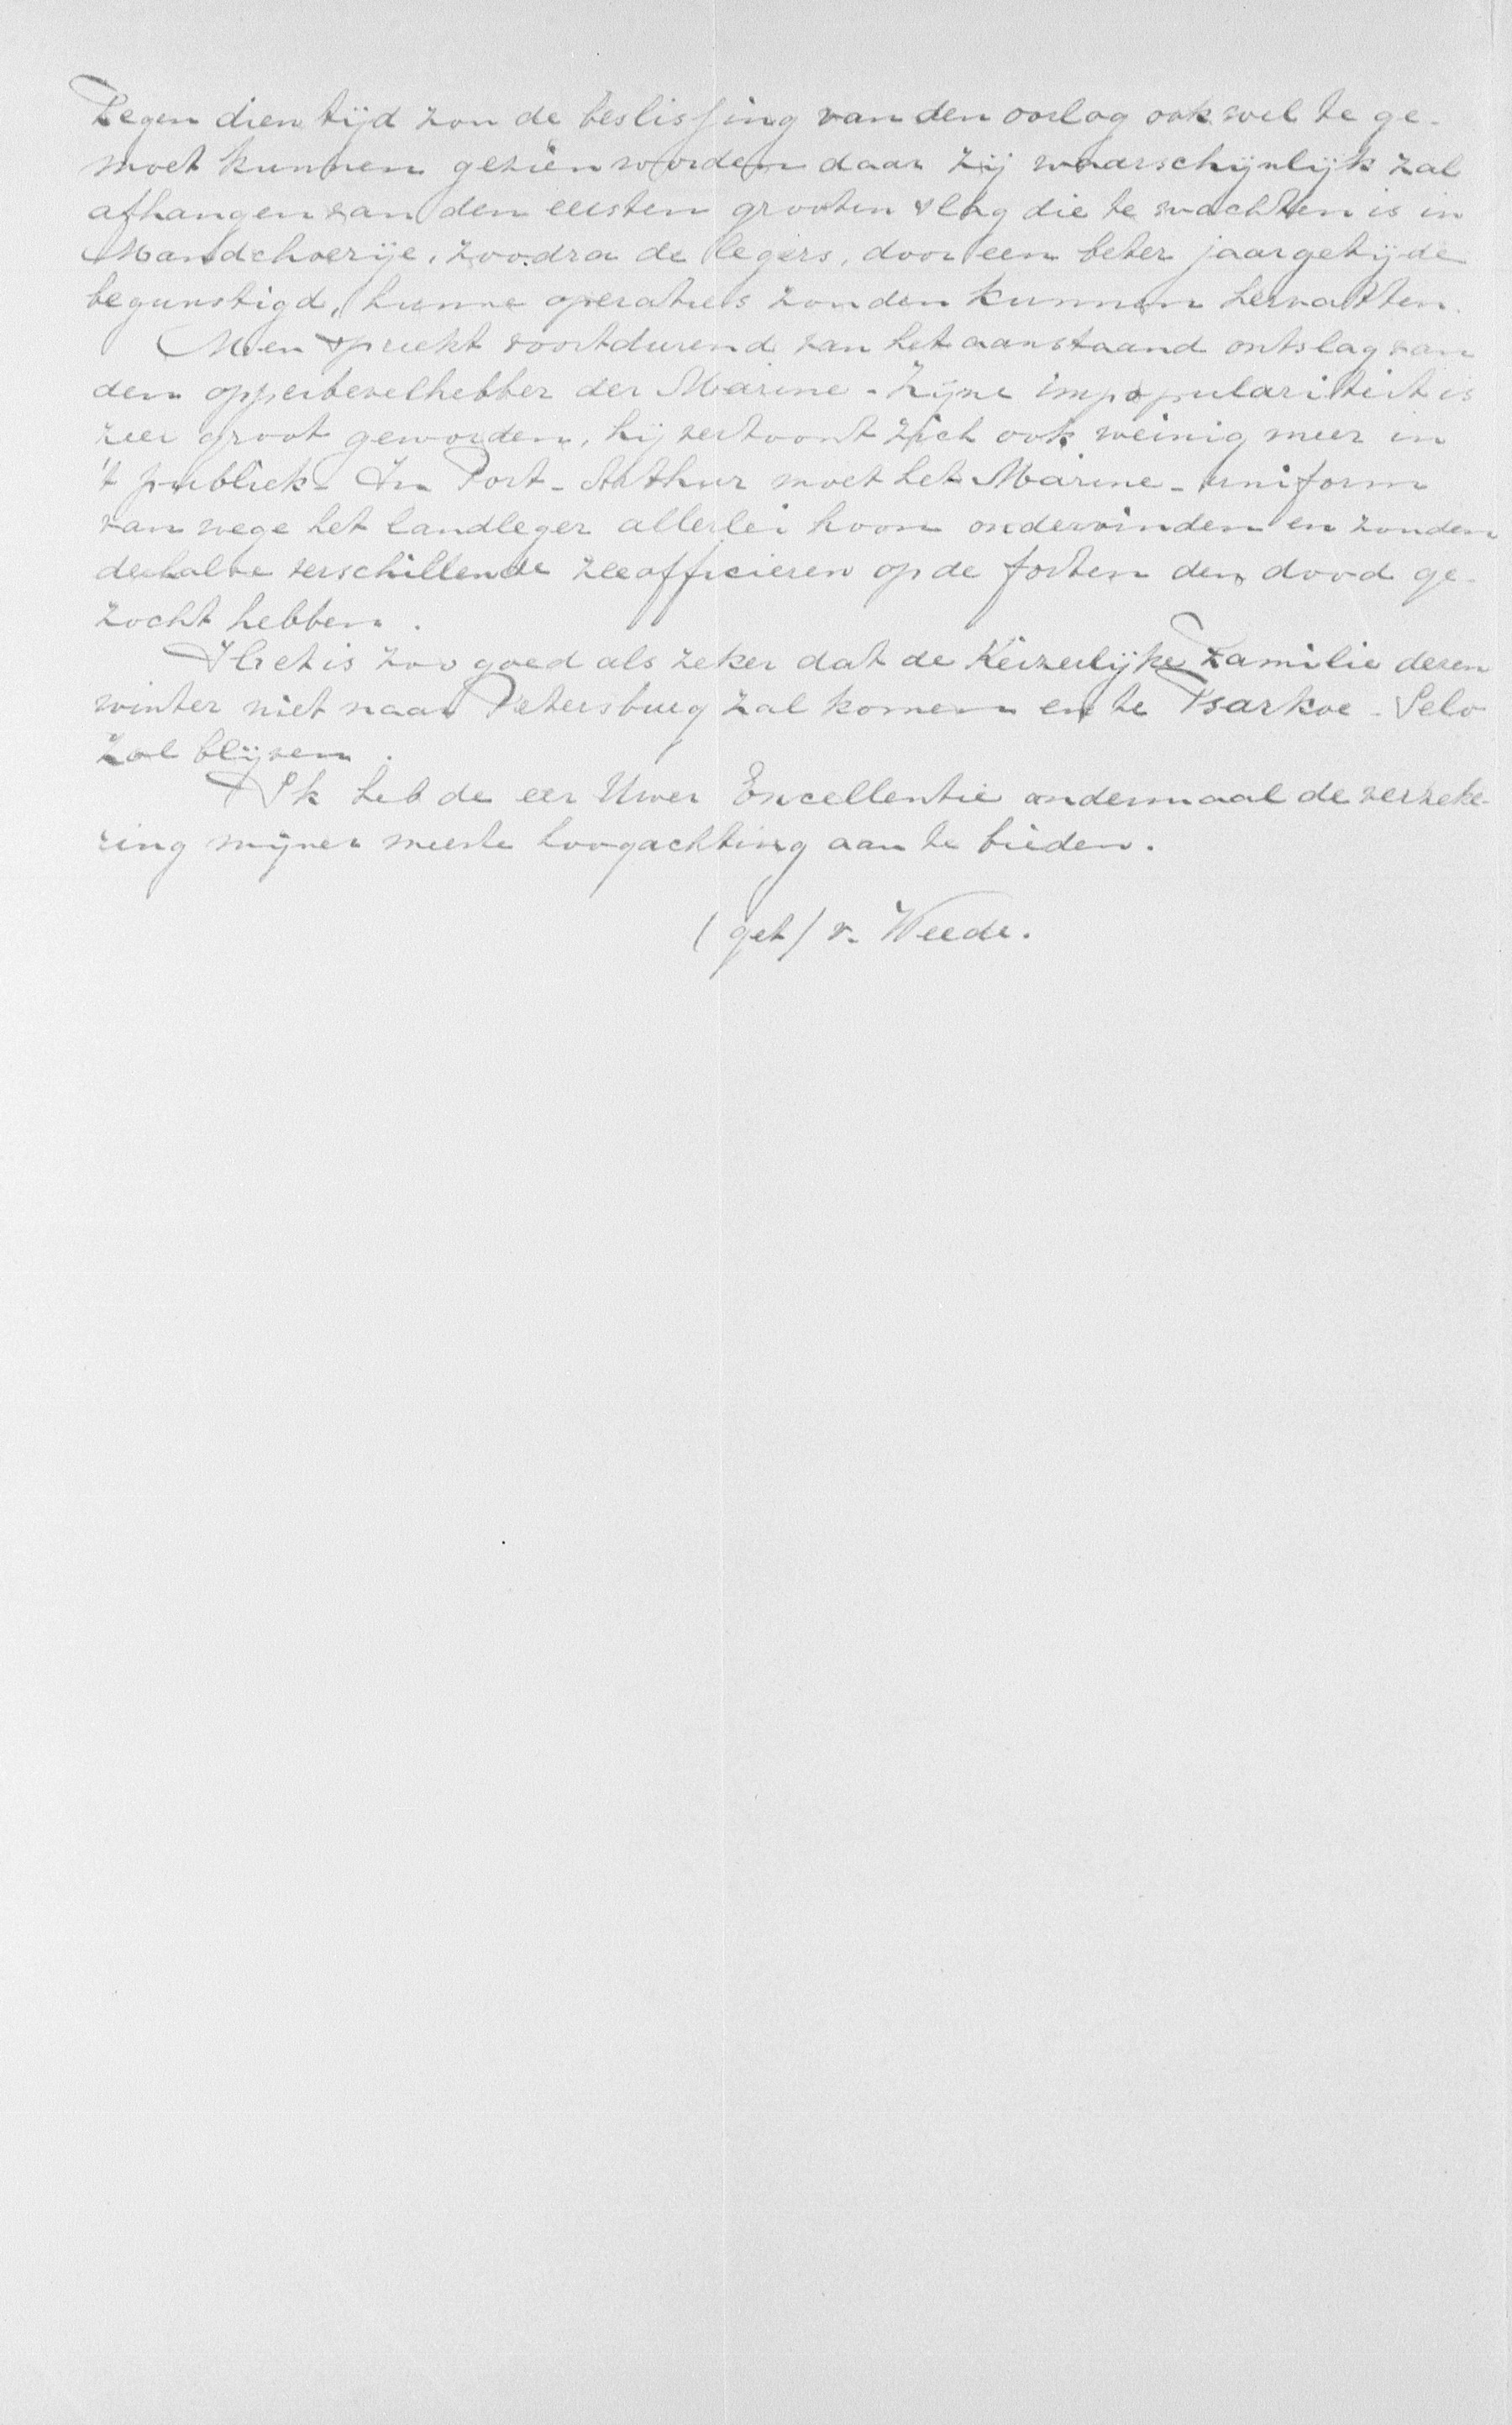 Tegen dien tijd zou de beslissing van den oorlog ook wel te ge-
moet kunnen gezien worden daar zij waarschijnlijk zal
afhangen van den eersten grooten slag die te wachten is in
Mandchoerije, zoodra de legers, door een beter jaargetijde
begunstigd, hunne operaties zouden kunnen hervatten.
Men spreekt voortdurend van het aanstaand ontslag van
den opperbevelhebber der Marine - Zijne impopulariteit is
zeer groot geworden, hij vertoont zich ook weinig meer in
't publiek - In Port-Arthur moet het Marine-uniform
van wege het landleger allerlei hoon ondervinden en zouden
derhalve verschillende zeeofficieren op de forten den dood ge-
zocht hebben.
Het is zoo goed als zeker dat de Keizerlijke Familie dezen
winter niet naar Petersburg zal komen en te Tsarkoe-Selo
zal blijven.
Ik heb de eer Uwer Excellentie andermaal de verzeke-
ring mijner meeste hoogachting aan te bieden.
(get) v. Weede.